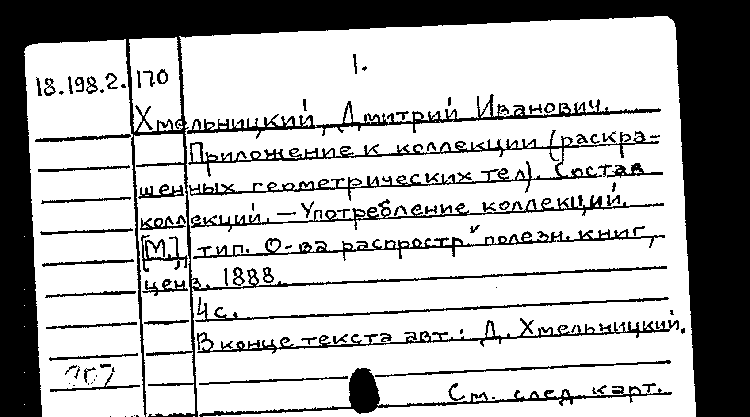 1.
18.198.2.170
Хмельницкий, Дмитрий Иванович.
Приложение к коллекции (раскра-
шенных геометрических тел). Состав
коллекций. – Употребление коллекций.
[М.], тип. О-ва распростр. полезн. книг,
ценз. 1888.
4 с.
В конце текста авт.: Д. Хмельницкий.
См. след. карт.